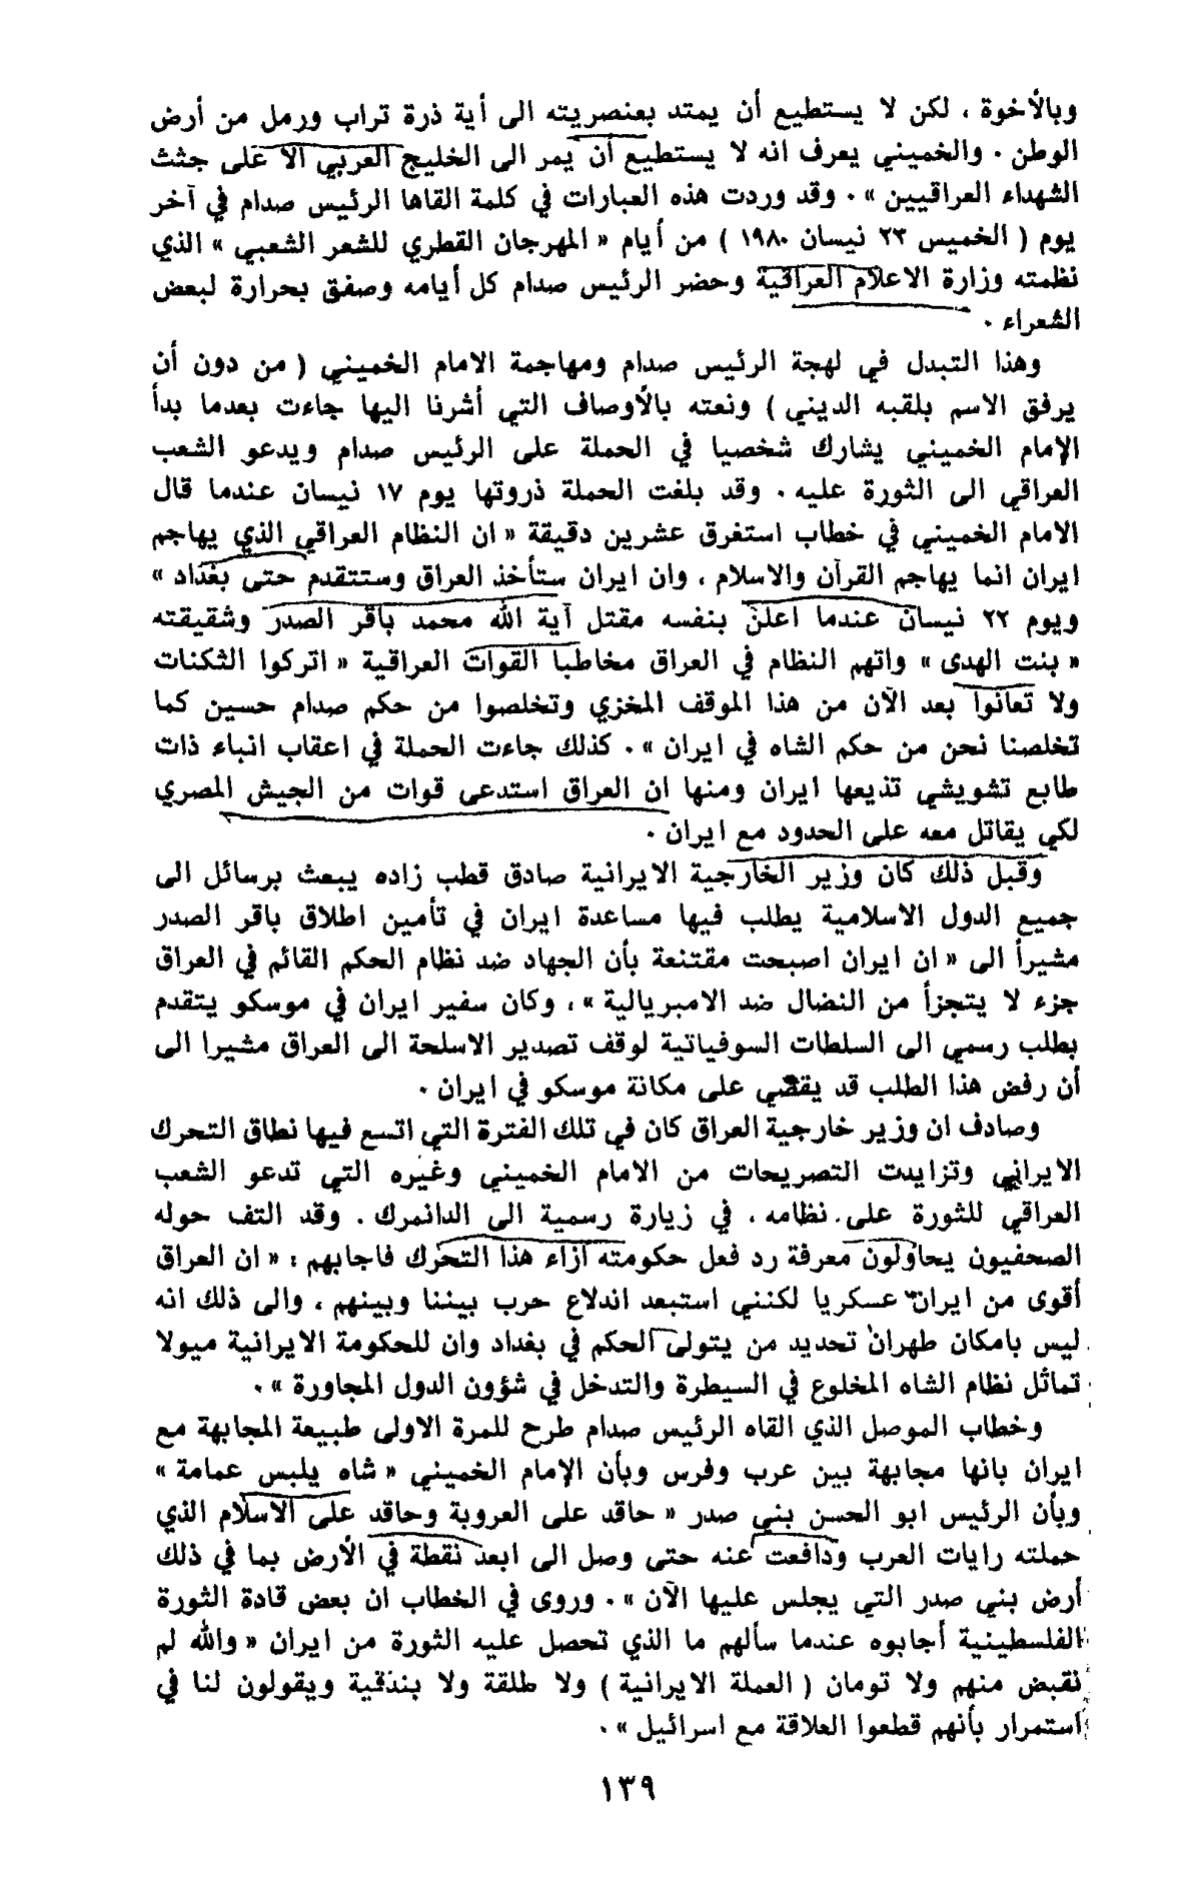 وبالأخوة ، لكن لا يستطيع أن يمتد بعنصريته الى أية ذرة تراب ورمل من أرض
الوطن . والخميني يعرف انه لا يستطيع أن يمر الى الخليج العربي الا على جثث
الشهداء العراقيين » . وقد وردت هذه العبارات في كلمة القاها الرئيس صدام في آخر
يوم ( الخميس ٢٣ نيسان ١٩٨٠ ) من أيام « المهرجان القطري للشعر الشعبي » الذي
نظمته وزارة الاعلام العراقية وحضر الرئيس صدام كل أيامه وصفق بحرارة لبعض
الشعراء .
وهذا التبدل في لهجة الرئيس صدام ومهاجمة الامام الخميني ( من دون أن
يرفق الاسم بلقبه الديني ) ونعته بالأوصاف التي أشرنا اليها جاءت بعدما بدأ
الإمام الخميني يشارك شخصيا في الحملة على الرئيس صدام ويدعو الشعب
العراقي الى الثورة عليه . وقد بلغت الحملة ذروتها يوم ١٧ نيسان عندما قال
الامام الخميني في خطاب استغرق عشرين دقيقة « ان النظام العراقي الذي يهاجم
ايران انما يهاجم القرآن والاسلام ، وان ايران ستأخذ العراق وستتقدم حتى بغداد »
ويوم ٢٢ نيسان عندما اعلن بنفسه مقتل آية الله محمد باقر الصدر وشقيقته
« بنت الهدى » واتهم النظام في العراق مخاطبا القوات العراقية « اتركوا الثكنات
ولا تعانوا بعد الآن من هذا الموقف المخزي وتخلصوا من حكم صدام حسين كما
تخلصنا نحن من حكم الشاه في ايران » . كذلك جاءت الحملة في اعقاب انباء ذات
طابع تشويشي تذيعها ايران ومنها ان العراق استدعى قوات من الجيش المصري
لكي يقاتل معه على الحدود مع ايران .
وقبل ذلك كان وزير الخارجية الايرانية صادق قطب زاده يبعث برسائل الى
جميع الدول الاسلامية يطلب فيها مساعدة ايران في تأمين اطلاق باقر الصدر
مشيراً الى « ان ايران اصبحت مقتنعة بأن الجهاد ضد نظام الحكم القائم في العراق
جزء لا يتجزأ من النضال ضد الامبريالية » ، وكان سفير ايران في موسكو يتقدم
بطلب رسمي الى السلطات السوفياتية لوقف تصدير الاسلحة الى العراق مشيرا الى
أن رفض هذا الطلب قد يقضي على مكانة موسكو في ايران .
وصادف ان وزير خارجية العراق كان في تلك الفترة التي اتسع فيها نطاق التحرك
الايراني وتزايدت التصريحات من الامام الخميني وغيره التي تدعو الشعب
العراقي للثورة على نظامه ، في زيارة رسمية الى الدانمرك . وقد التف حوله
الصحفيون يحاولون معرفة رد فعل حكومته ازاء هذا التحرك فاجابهم : « ان العراق
أقوى من ايران عسكريا لكنني استبعد اندلاع حرب بيننا وبينهم ، والى ذلك انه
ليس بامكان طهران تحديد من يتولى الحكم في بغداد وان للحكومة الايرانية ميولا
تماثل نظام الشاه المخلوع في السيطرة والتدخل في شؤون الدول المجاورة » .
وخطاب الموصل الذي القاه الرئيس صدام طرح للمرة الاولى طبيعة المجابهة مع
ايران بانها مجابهة بين عرب وفرس وبأن الإمام الخميني « شاه يلبس عمامة »
وبأن الرئيس ابو الحسن بني صدر « حاقد على العروبة وحاقد على الاسلام الذي
حملته رايات العرب ودافعت عنه حتى وصل الى ابعد نقطة في الأرض بما في ذلك
أرض بني صدر التي يجلس عليها الآن » . وروى في الخطاب ان بعض قادة الثورة
الفلسطينية أجابوه عندما سألهم ما الذي تحصل عليه الثورة من ايران « والله لم
نقبض منهم ولا تومان ( العملة الايرانية ) ولا طلقة ولا بندقية ويقولون لنا في
استمرار بأنهم قطعوا العلاقة مع اسرائيل » .
١٣٩